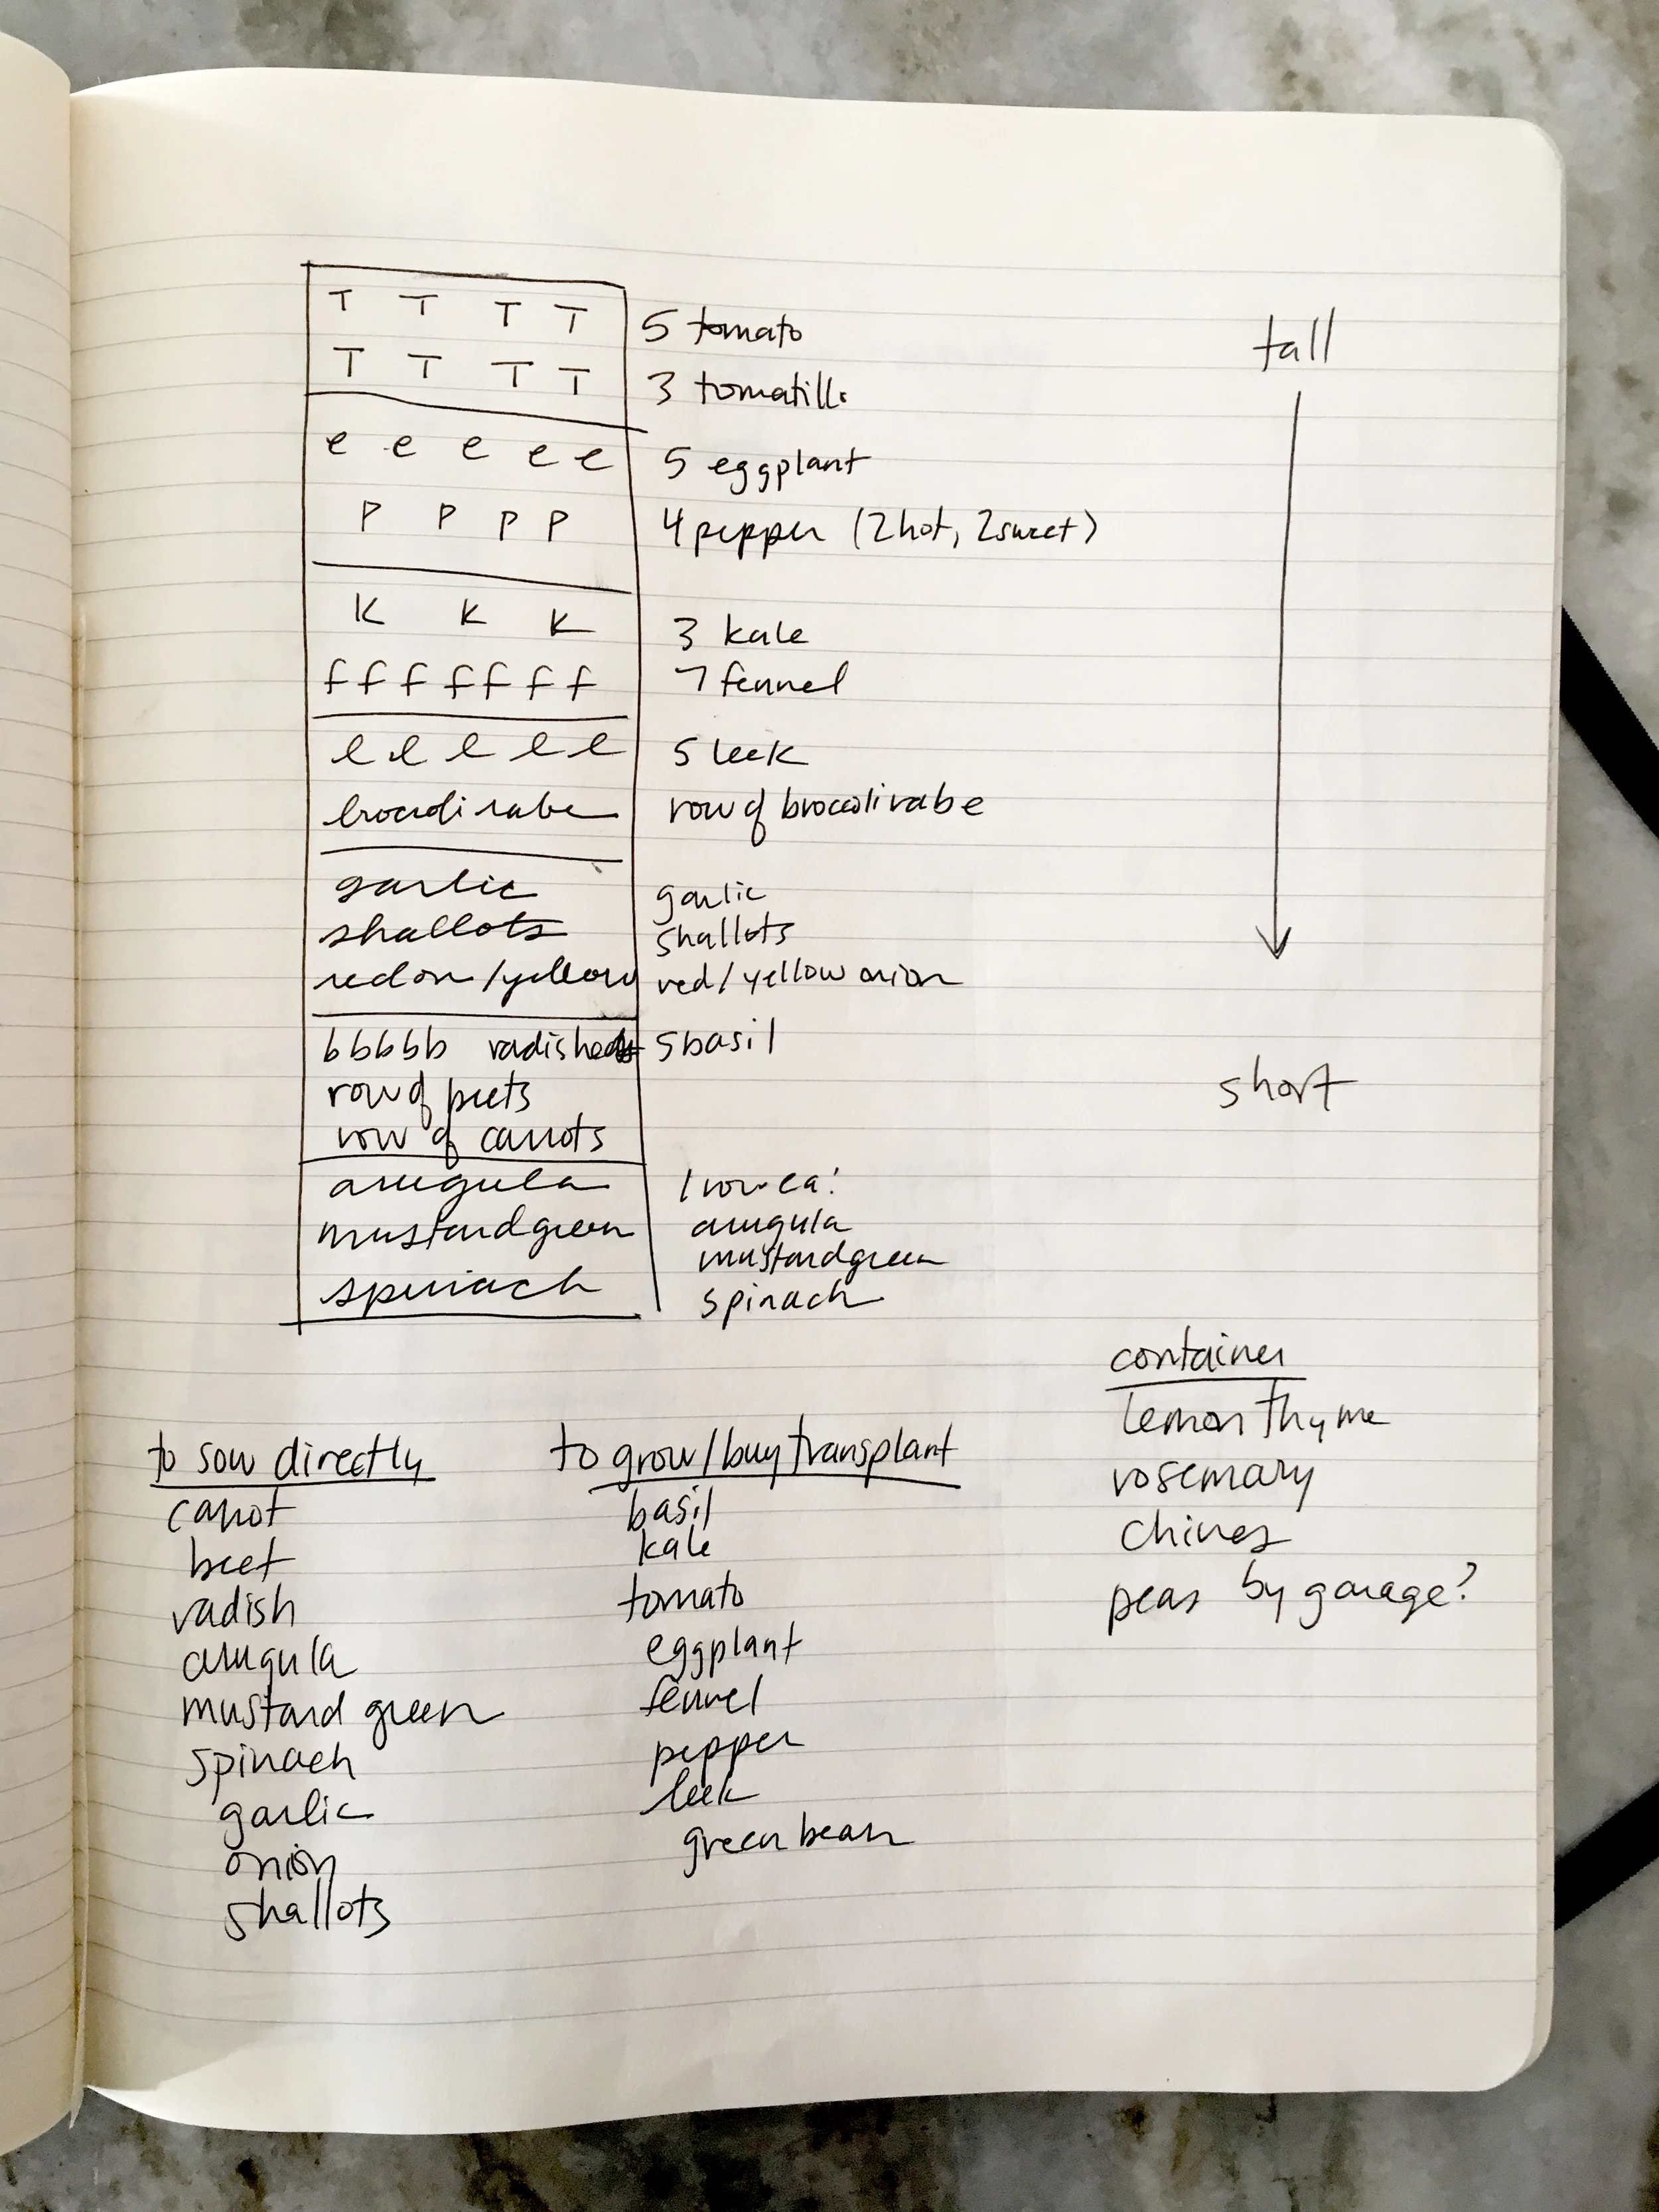 T T T T
5 tomato
T T T T
3 tomatillo
tall
e e e e e
5 eggplant
P P P P
4 pepper (2 hot, 2 sweet)
K K K
3 kale
f f f f f f f
7 fennel
l l l l l
5 leek
broccoli rabe
row of broccoli rabe
garlic
garlic
shallots
shallots
red on/yellow
red/yellow onion
b b b b b radishes
5 basil
short
row of beets
row of carrots
arugula
1 row ea:
mustard green
arugula
mustard green
spinach
spinach
to sow directly
carrot
beet
radish
arugula
mustard green
spinach
garlic
onion
shallots
to grow/buy transplant
basil
kale
tomato
eggplant
fennel
pepper
leek
green bean
container
lemon thyme
rosemary
chives
peas by garage?